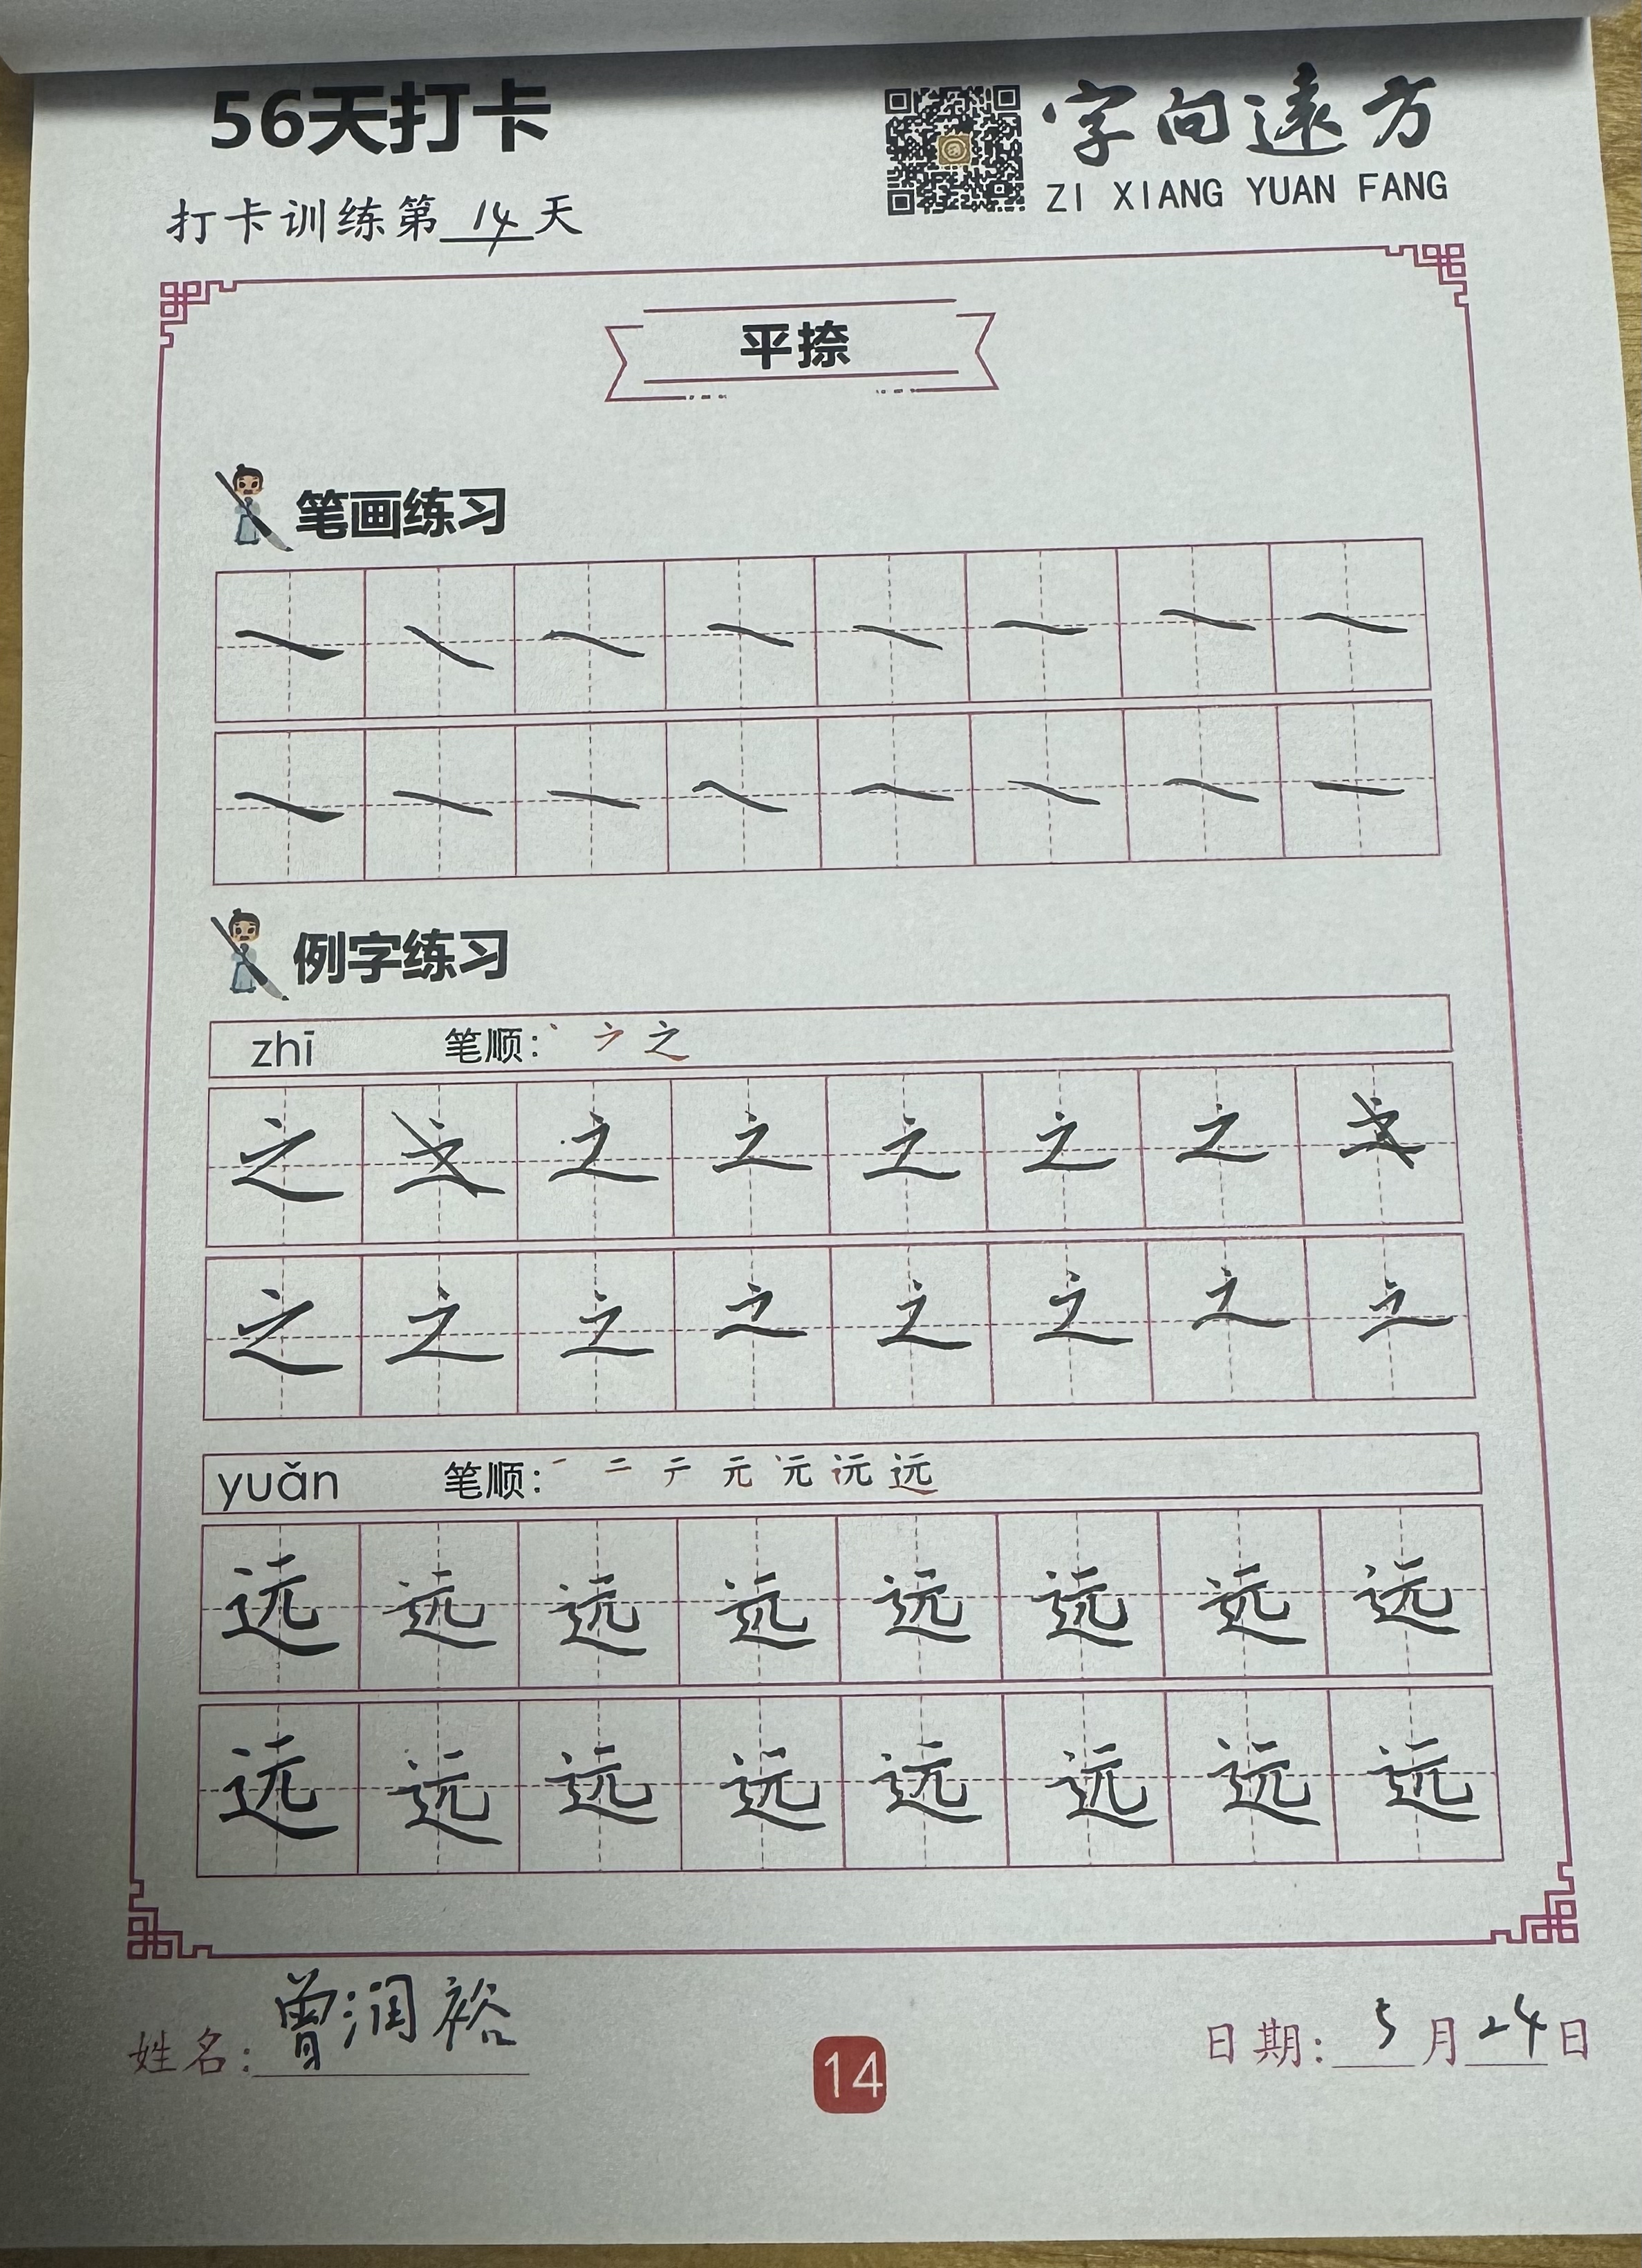 56天打卡
字向遠方
ZI XIANG YUAN FANG
打卡训练第14天
平捺
笔画练习
例字练习
zhī 笔顺: 之
之 之 之 之 之 之 之 之
之 之 之 之 之 之 之 之
yuǎn 笔顺: 一 二 テ 元 远
远 远 远 远 远 远 远 远
远 远 远 远 远 远 远 远
姓名: 曾润裕
14
日期: 5月24日